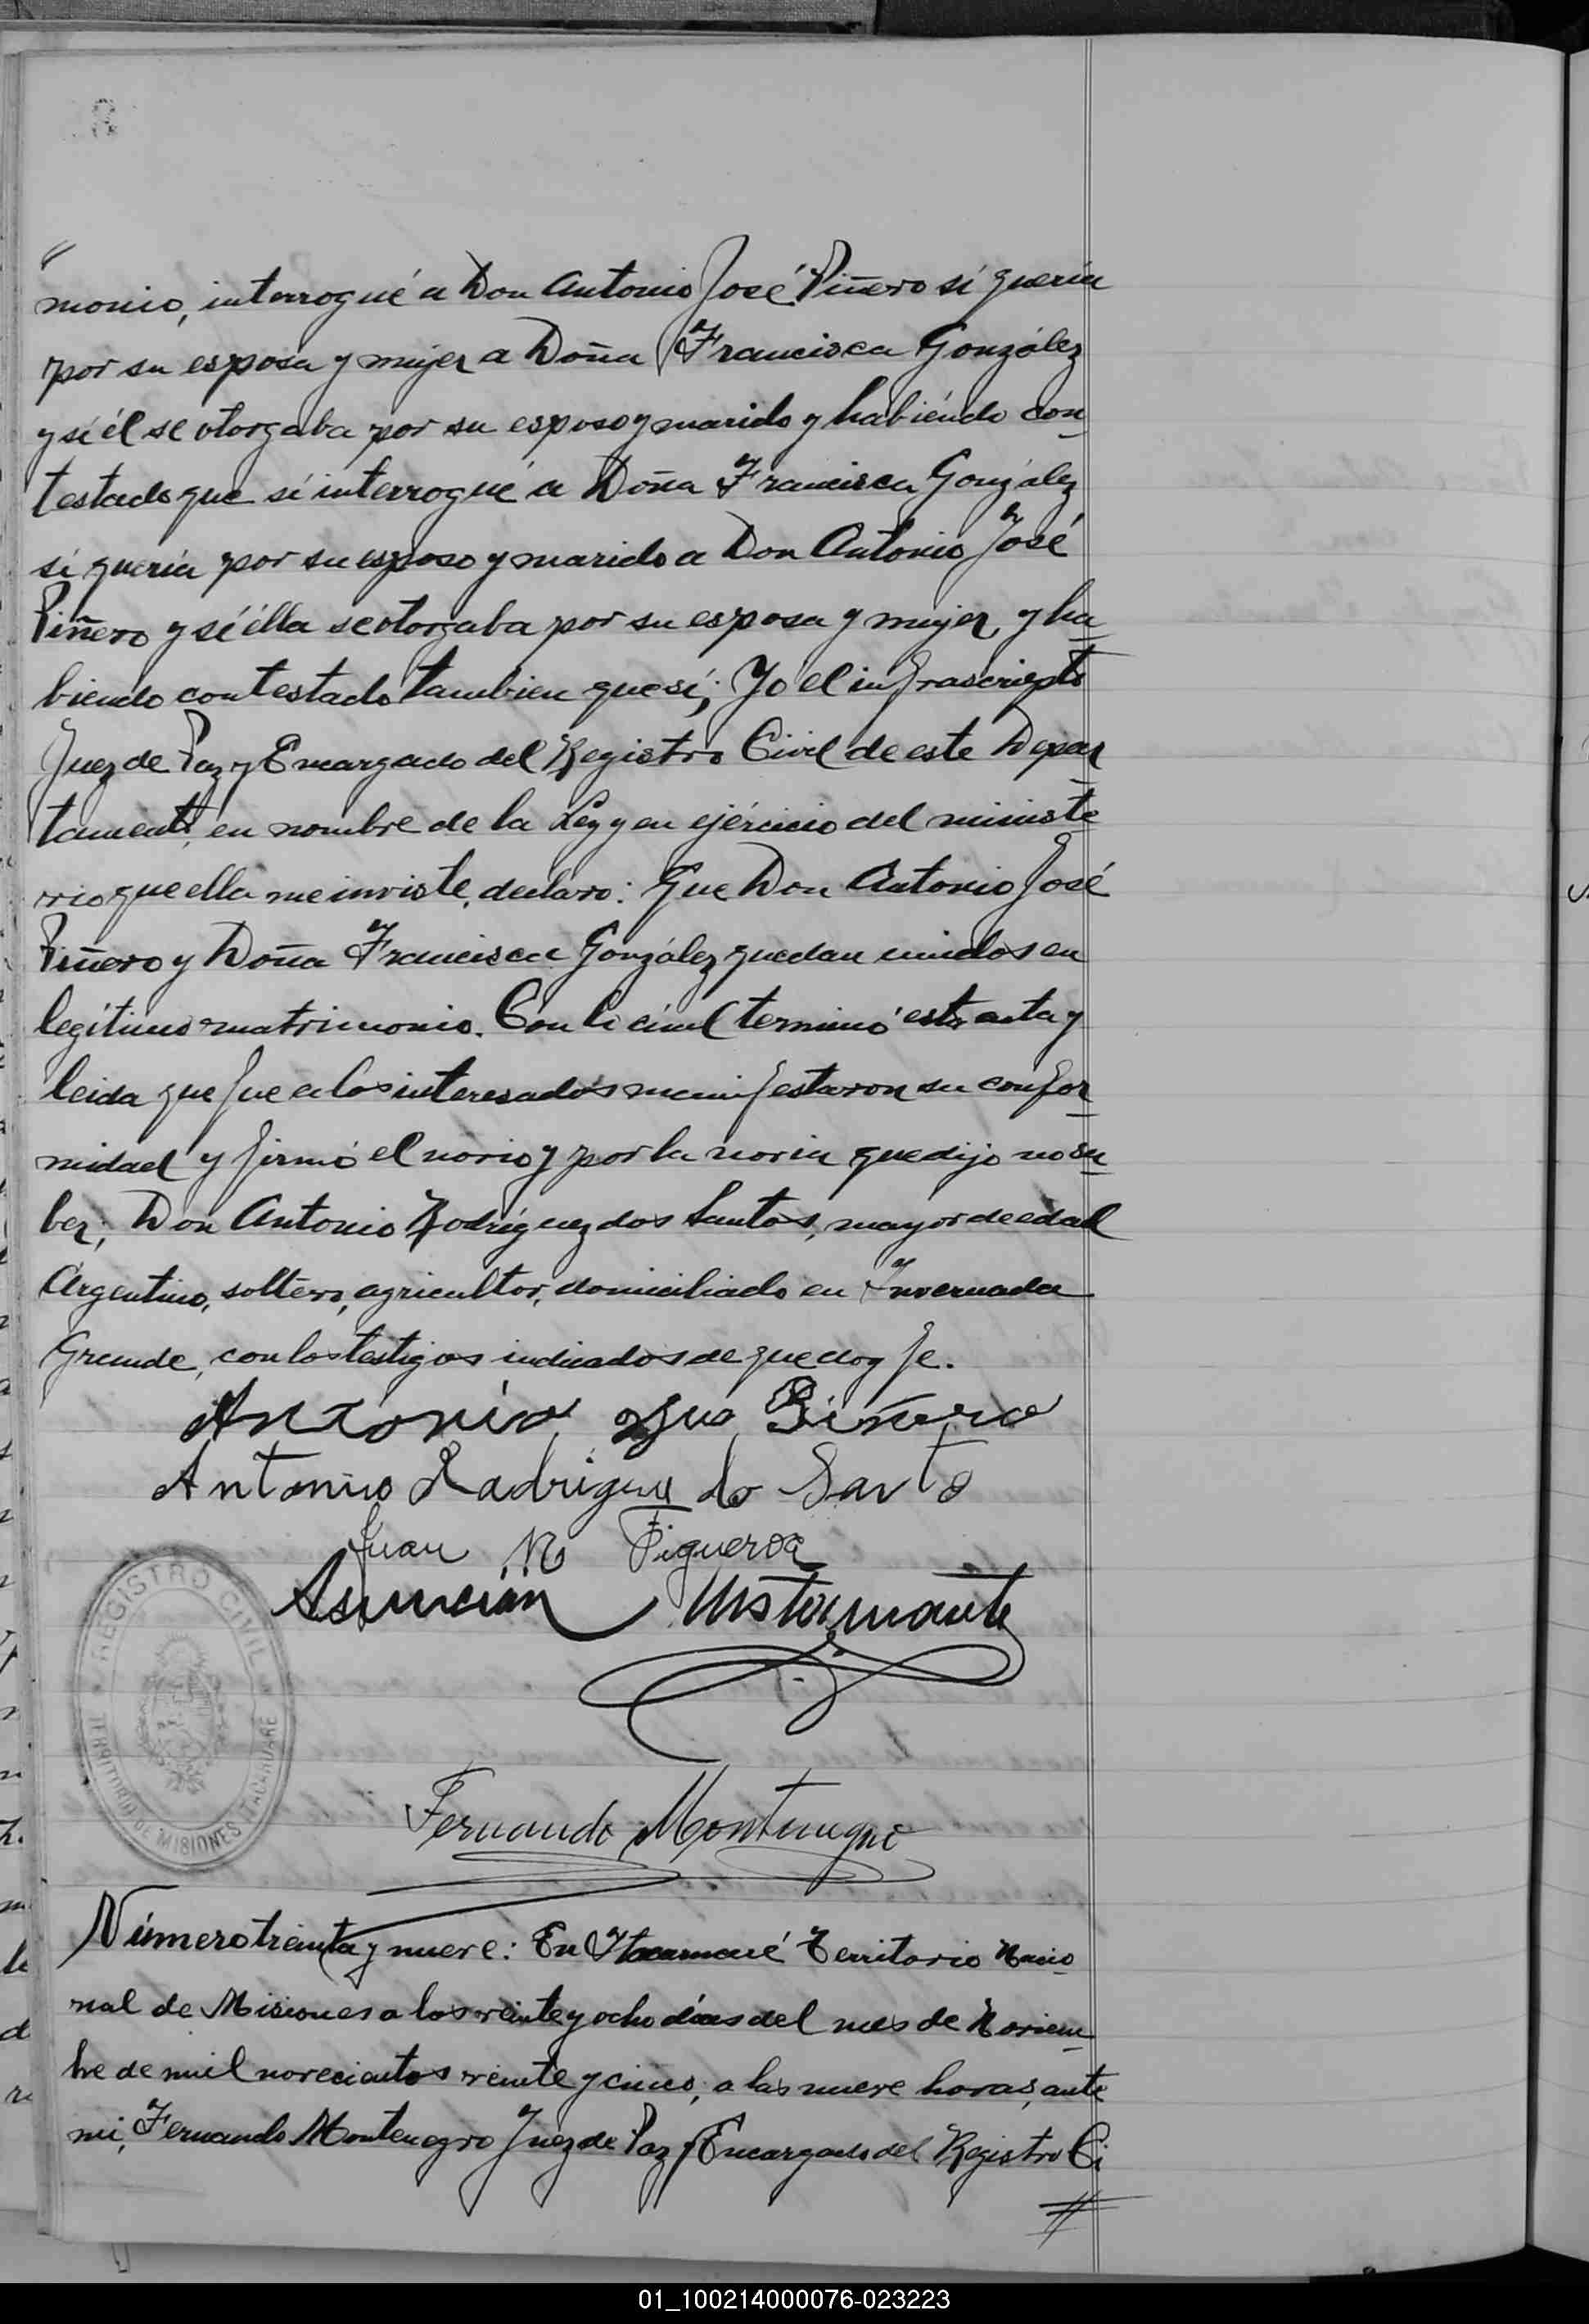 monio, interrogué a Don Antonio José Piñero si quería
por su esposa y mujer a Doña Francisca González
y si él se otorgaba por su esposo y marido y habiéndo con
testado que sí interrogué a Doña Francisca González
si quería por su esposo y marido a Don Antonio José
Piñero y si élla se otorgaba por su esposa y mujer, y ha
biendo contestado tambien que sí; Yo el infrascripto
Juez de Paz y Encargado del Registro Civil de este Depar
tamento, en nombre de la Ley y en ejércicio del ministe
rio que ella me inviste, declaro: Que Don Antonio José
Piñero y Doña Francisca González quedan unidos en
legítimo matrimonio. Con lo cual terminó esta acta y
leida que fue a los interesados manifestaron su confor
midad y firmó el novio y por la novia que dijo no sa
ber; Don Antonio Rodríguez dos Santos, mayor de edad
Argentino, soltero, agricultor, domiciliado en Invernada
Grande, con los testigos indicados de que doy fe.
Antonio Piñero
Antonio Radrigue do Santo
Juan Figueroa
Asunción
REGISTRO CIVIL
TERRITORIO DE MISIONES ITACARUARE
Fernando Montenegro
Número treinta y nueve: En Itacaruaré Territorio Nacio
nal de Misiones a los veinte y ocho días del mes de Noviem
bre de mil novecientos veinte y cinco; a las nueve horas, ante
mi, Fernando Montenegro Juez de Paz y Encargado del Registro Ci
01_100214000076-023223